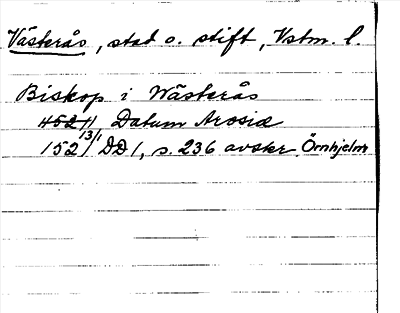 Västerås, stad o. stift, Vstm. l.
Biskop i Wästerås
4521 Datum Arosiæ
152 13/1 DD 1, s. 236 avskr. Örnhjelm